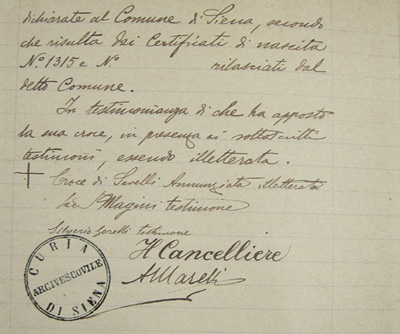 dichiarate al Comune di Siena, secondo
che risulta dai Certificati di nascita
N.º 1315 e N.º rilasciati dal
detto Comune.
In testimonianza di che ha apposto
la sua croce, in presenza ai sottoscritti
testimoni, essendo illetterata.
Croce di Savelli Annunziata illetterata
Magini testimone
Silverio testimone
Il Cancelliere
A Marelli
CURIA
ARCIVESCOVILE
DI SIENA